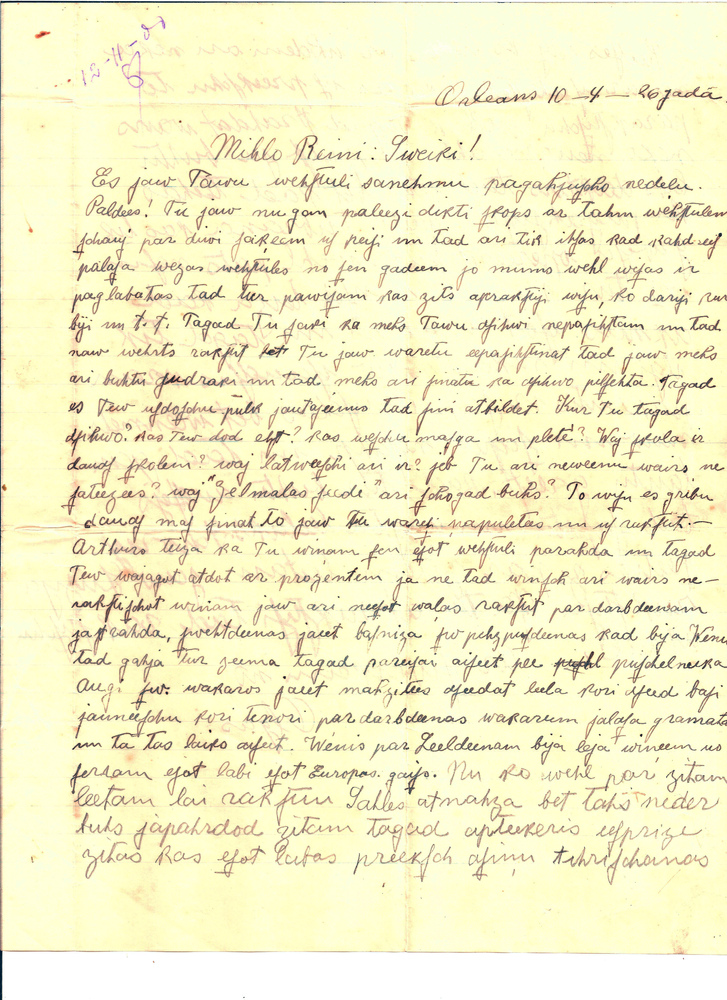 12-11-81
Orleans 10-4-26 gadā.
Mihlo Reini: Sweiki!
Es jaw Tawu wehstuli sanehmu pagahjuscho nedelu.
Paldees! Tu jaw nu gan paleezi dikti skops ar tahm wehstulem
par diwi un tad ari tik ihsas kad kahd
palasa wezas wehstules no sen gadeem jo mums wehl wisas ir
paglabatas tad tur pawisam kas zits aprakstiji wisu, ko dariji kur
biji un t.t. Tagad Tu saki ka mehs Tawu dsihwi nepasihstam un tad
naw wehrts rakstit Tu jaw waretu eepasihstinat tad jaw mehs
ari buhtu gudraki un tad mehs ari sinatu ka dsihwo pilsehta. Tagad
es Tew usdoschu pulk jautajeenus tad sini atbildet. Kur Tu tagad
dsihwo? kas Tew dod ehst? kas weschu masga un plete? Waj skola ir
daudz skoleni? waj latweeschi ari ir? jeb Tu ari neweenu wairs ne
sateezees? waj "Zelmalas seedi" ari schogad buhs? To wisu es gribu
daudz mas sinat to jaw Tu waru napuletas un us rakstit.-
Arthurs teiza ka Tu winam sen esot wehstuli parahda un tagad
Tew wajagot atdot ar prozentem ja ne tad winsch ari wairs ne-
rakstischot winam jaw ari neesot walas rakstit par darbdeenam
jastrahda, swehtdeenas jaeet basniza kad bija Wenis
tad gahja tur tagad aiseet pee puischelneeka
Augi sw. wakaros jaeet mahzitees dseedat leela kori dseed basi
jauneeschu kori tenori par darbdeenas wakarum jalasa gramata
un ta tas laiks aiseet. Wenis par Leeldeenam bija leja wineem no
fersam esot labi esot Europas gaiss. Nu ko wehl par zitam
leetam lai rakstu Sahles atnahza bet tahs neder
buhs japahrdod zitam tagad apteekeris
zitas kas esot labas preeksch asinu tihrischanas